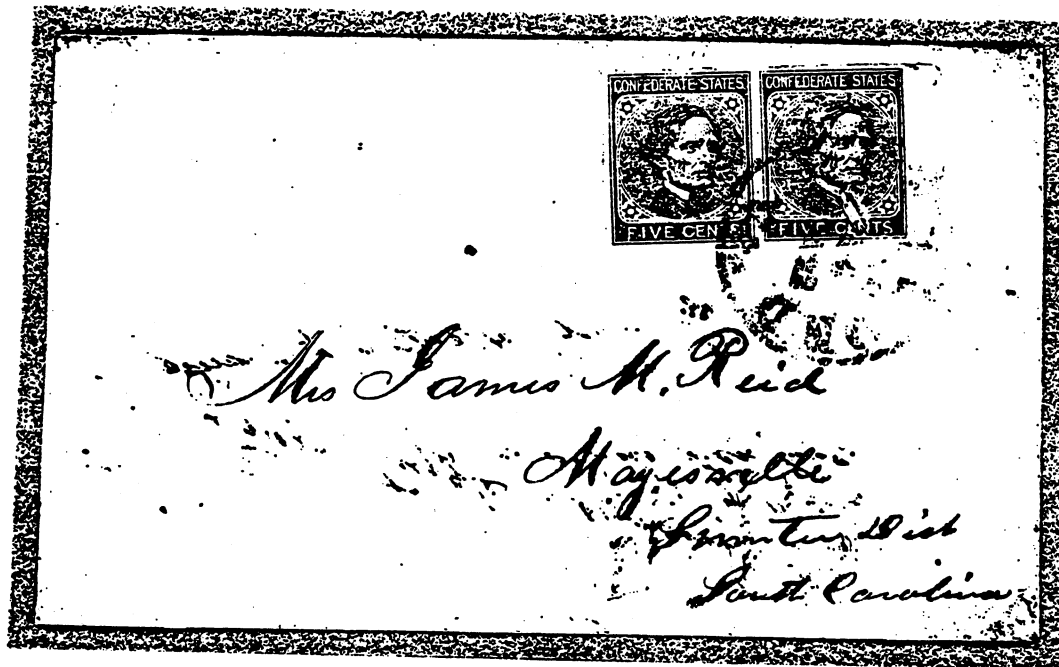 CONFEDERATE STATES CONFEDERATE STATES
FIVE CENTS FIVE CENTS
Mrs James M. Reid
Mayesville
Sumter Dist
South Carolina